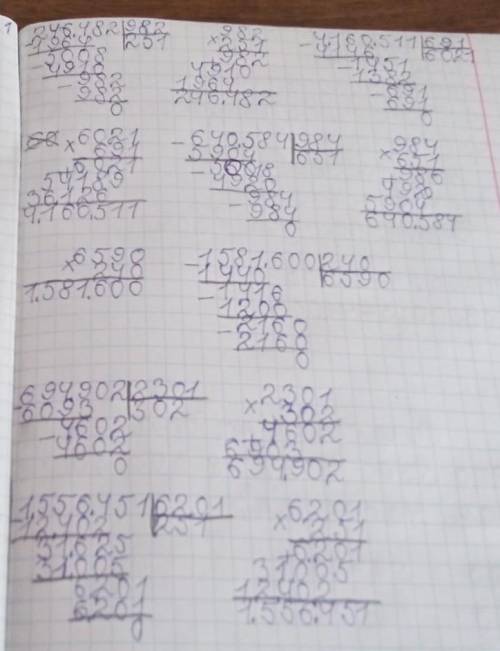 246.482 982
1964 251
-5008
-982
982
0
×982
251
982
4910
1964
246.482
-4.160.511 691
4146 6021
-1451
1382
-691
691
0
×6021
691
6021
54189
36126
4.160.511
-640.584 984
5904 651
-984
984
0
×984
651
984
4920
5904
640.584
×6590
240
1.581.600
-1.581.600 240
1440 6590
-1416
1200
-2160
2160
0
694902 2301
6903 302
-4602
4602
0
×2301
302
4602
6903
694.902
1.556.451 6201
12402 251
31005
6201
6201
0
×6201
251
6201
31005
12402
1.556.451